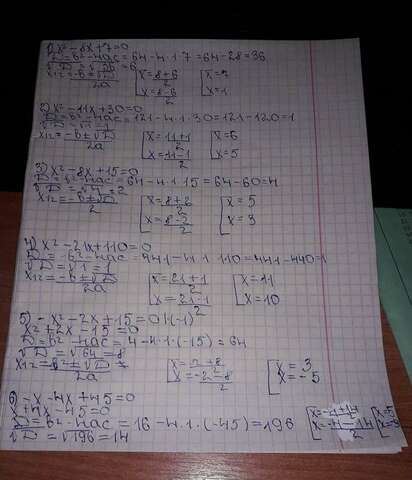 1) x² - 8x + 7 = 0
D = b² - 4ac = 64 - 4·1·7 = 64 - 28 = 36
√D = √36 = 6
x12 = -b ± √D / 2a
[x = 8+6 / 2
x = 8-6 / 2
[x = 7
x = 1
2) x² - 11x + 30 = 0
D = b² - 4ac = 121 - 4·1·30 = 121 - 120 = 1
√D = √1 = 1
x12 = -b ± √D / 2a
[x = 11+1 / 2
x = 11-1 / 2
[x = 6
x = 5
3) x² - 8x + 15 = 0
D = b² - 4ac = 64 - 4·1·15 = 64 - 60 = 4
√D = √4 = 2
x12 = -b ± √D / 2
[x = 8+2 / 2
x = 8-2 / 2
[x = 5
x = 3
4) x² - 21x + 110 = 0
D = b² - 4ac = 441 - 4·1·110 = 441 - 440 = 1
√D = √1 = 1
x12 = -b ± √D / 2a
[x = 21+1 / 2
x = 21-1 / 2
[x = 11
x = 10
5) -x² - 2x + 15 = 0 |·(-1)
x² + 2x - 15 = 0
D = b² - 4ac = 4 - 4·1·(-15) = 64
√D = √64 = 8
[x = -2+8 / 2
x = -2-8 / 2
[x = 3
x = -5
6) -x - 4x + 45 = 0
x + 4x - 45 = 0
D = b² - 4ac = 16 - 4·1·(-45) = 196
√D = √196 = 14
[x = -4+14 / 2
x = -4-14 / 2
[x = 5